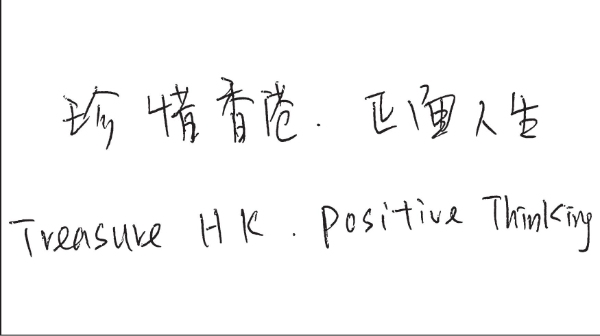 珍惜香港．正面人生
Treasure HK . Positive Thinking